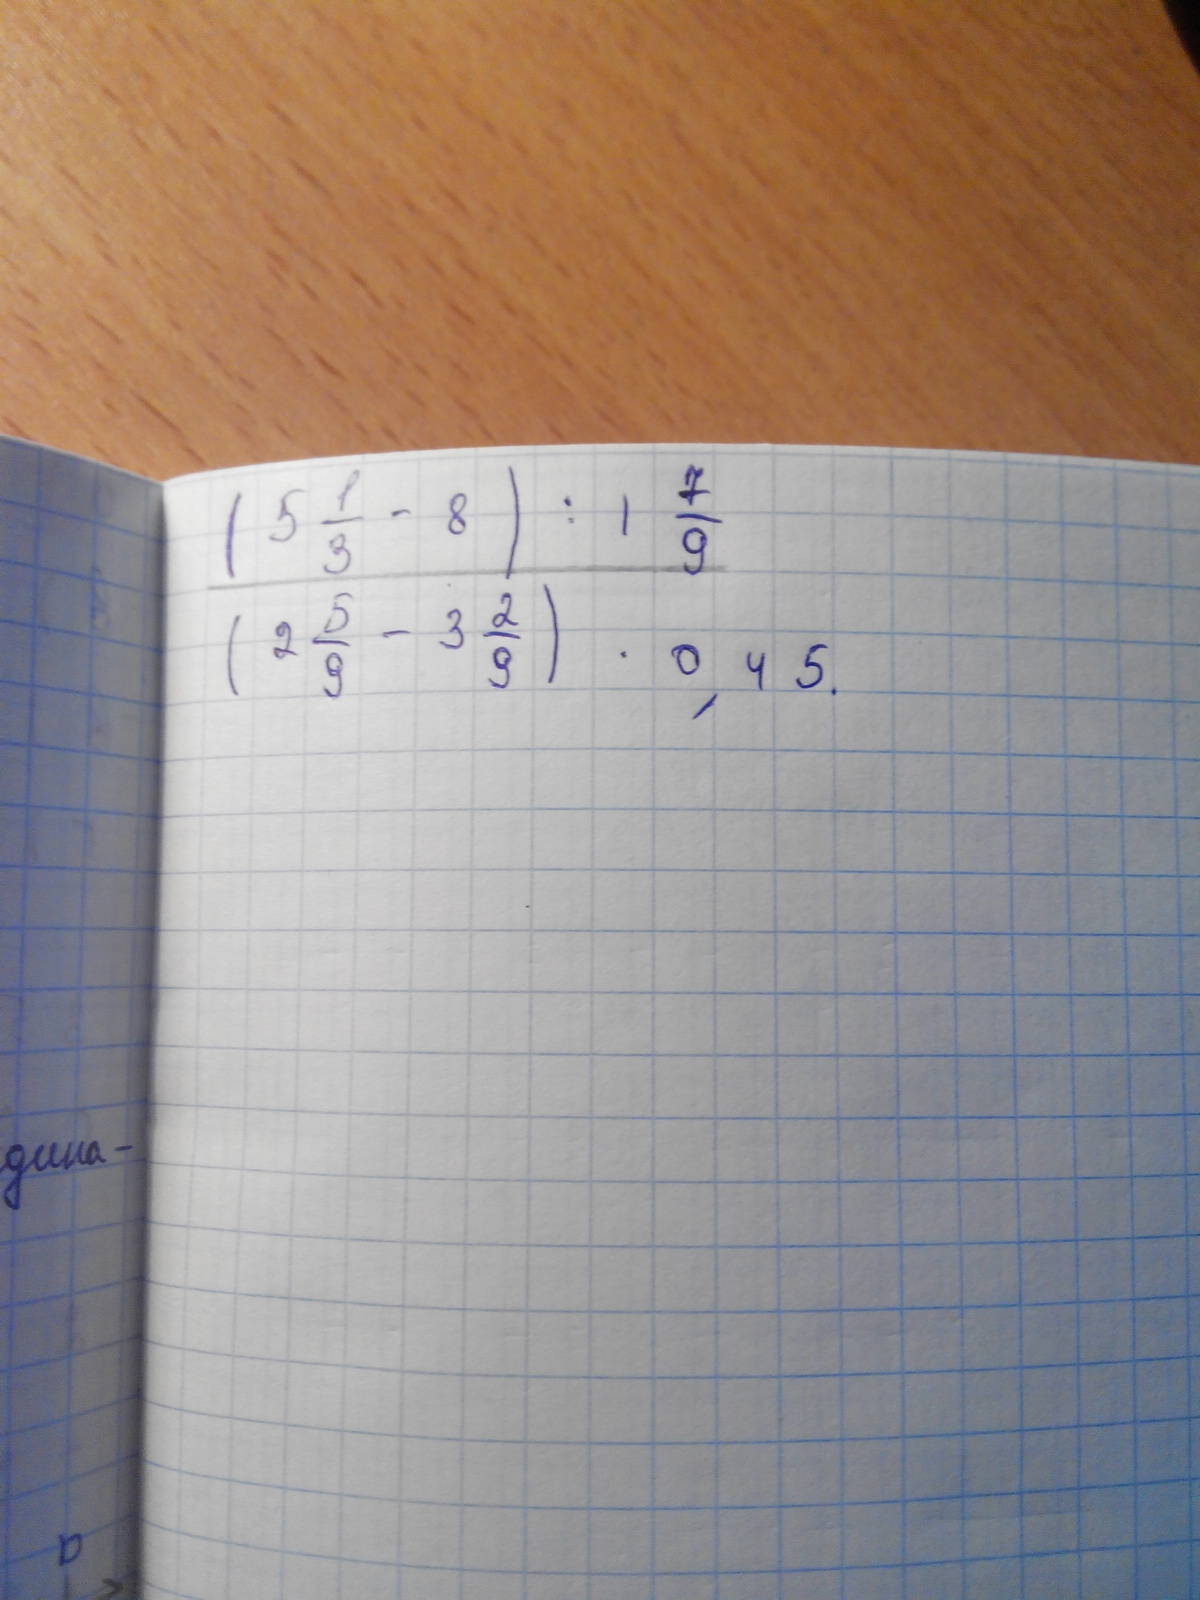 ( 5 1/3 - 8 ) : 1 7/9
( 2 5/9 - 3 2/9 ) · 0,45.
дина-
D